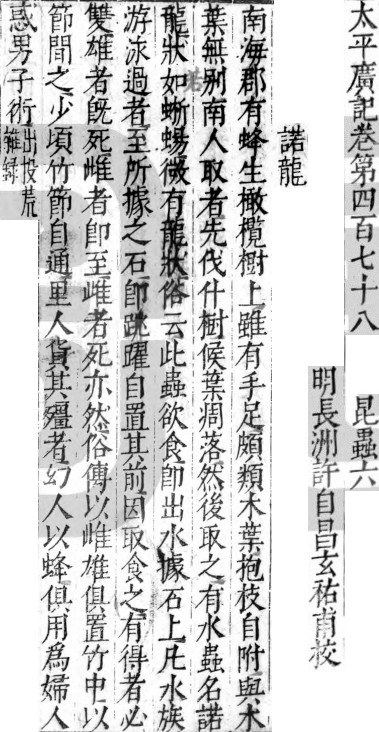 太平廣記卷第四百七十八 昆蟲六
明長洲許自昌玄祐甫校
諾龍
南海郡有蜂生橄欖樹上雖有手足頗類木葉抱枝自附與木
葉無别南人取者先伐仆樹候葉凋落然後取之有水蟲名諾
龍狀如蜥蜴微有龍狀俗云此蟲欲食即出水據石上凡水族
游泳過者至所據之石即跳躍自置其前因取食之有得者必
雙雄者既死雌者即至雌者死亦然俗傳以雌雄俱置竹中以
節間之少頃竹節自通里人貨其殭者幻人以蜂俱用爲婦人
惑男子術出投荒
雜録